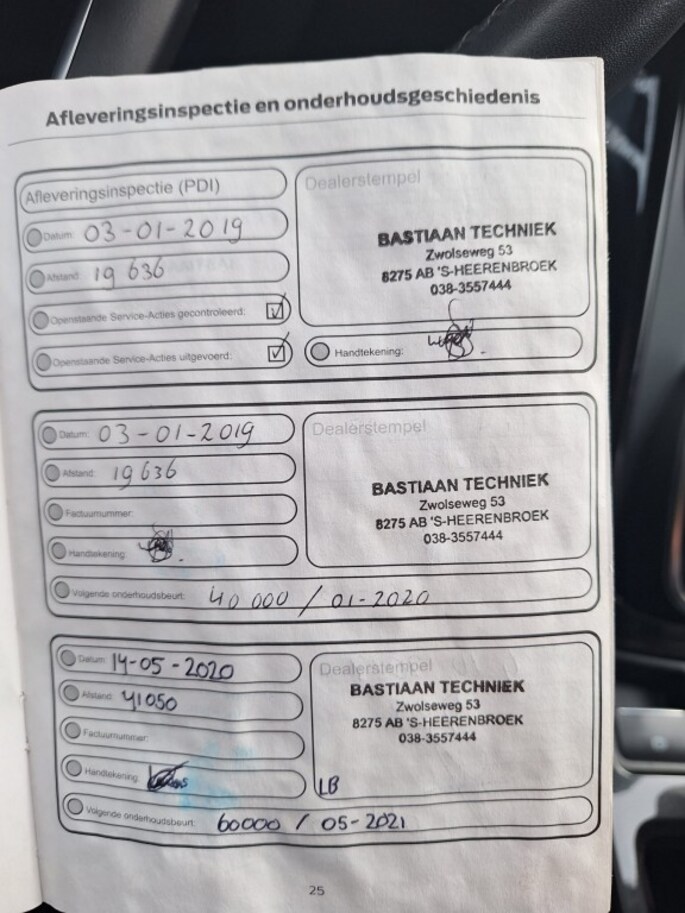 Afleveringsinspectie en onderhoudsgeschiedenis
Afleveringsinspectie (PDI)
Datum: 03-01-2019
Afstand: 19 636
Openstaande Service-Acties gecontroleerd:
Openstaande Service-Acties uitgevoerd:
Dealerstempel
BASTIAAN TECHNIEK
Zwolseweg 53
8275 AB 'S-HEERENBROEK
038-3557444
Handtekening:
Datum: 03-01-2019
Afstand: 19 636
Factuurnummer:
Handtekening:
Dealerstempel
BASTIAAN TECHNIEK
Zwolseweg 53
8275 AB 'S-HEERENBROEK
038-3557444
Volgende onderhoudsbeurt: 40 000 / 01-2020
Datum: 14-05-2020
Afstand: 41050
Factuurnummer:
Handtekening:
Dealerstempel
BASTIAAN TECHNIEK
Zwolseweg 53
8275 AB 'S-HEERENBROEK
038-3557444
LB
Volgende onderhoudsbeurt: 60000 / 05-2021
25